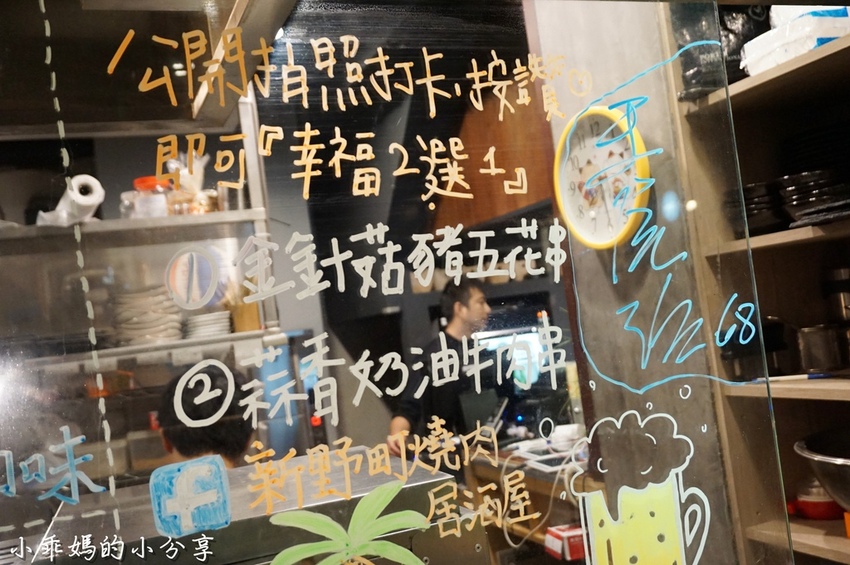 公開拍照打卡,按讚
即可『幸福2選1』
① 金針菇豬五花串
② 蒜香奶油牛肉串
f 新野町燒肉
居酒屋
味
68
小乖媽的小分享